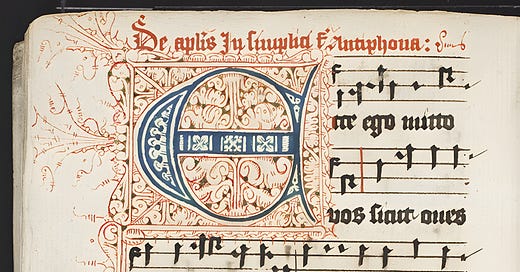 De aplis In simplici f. Antiphona:
Ecce ego mitto
vos sicut oves